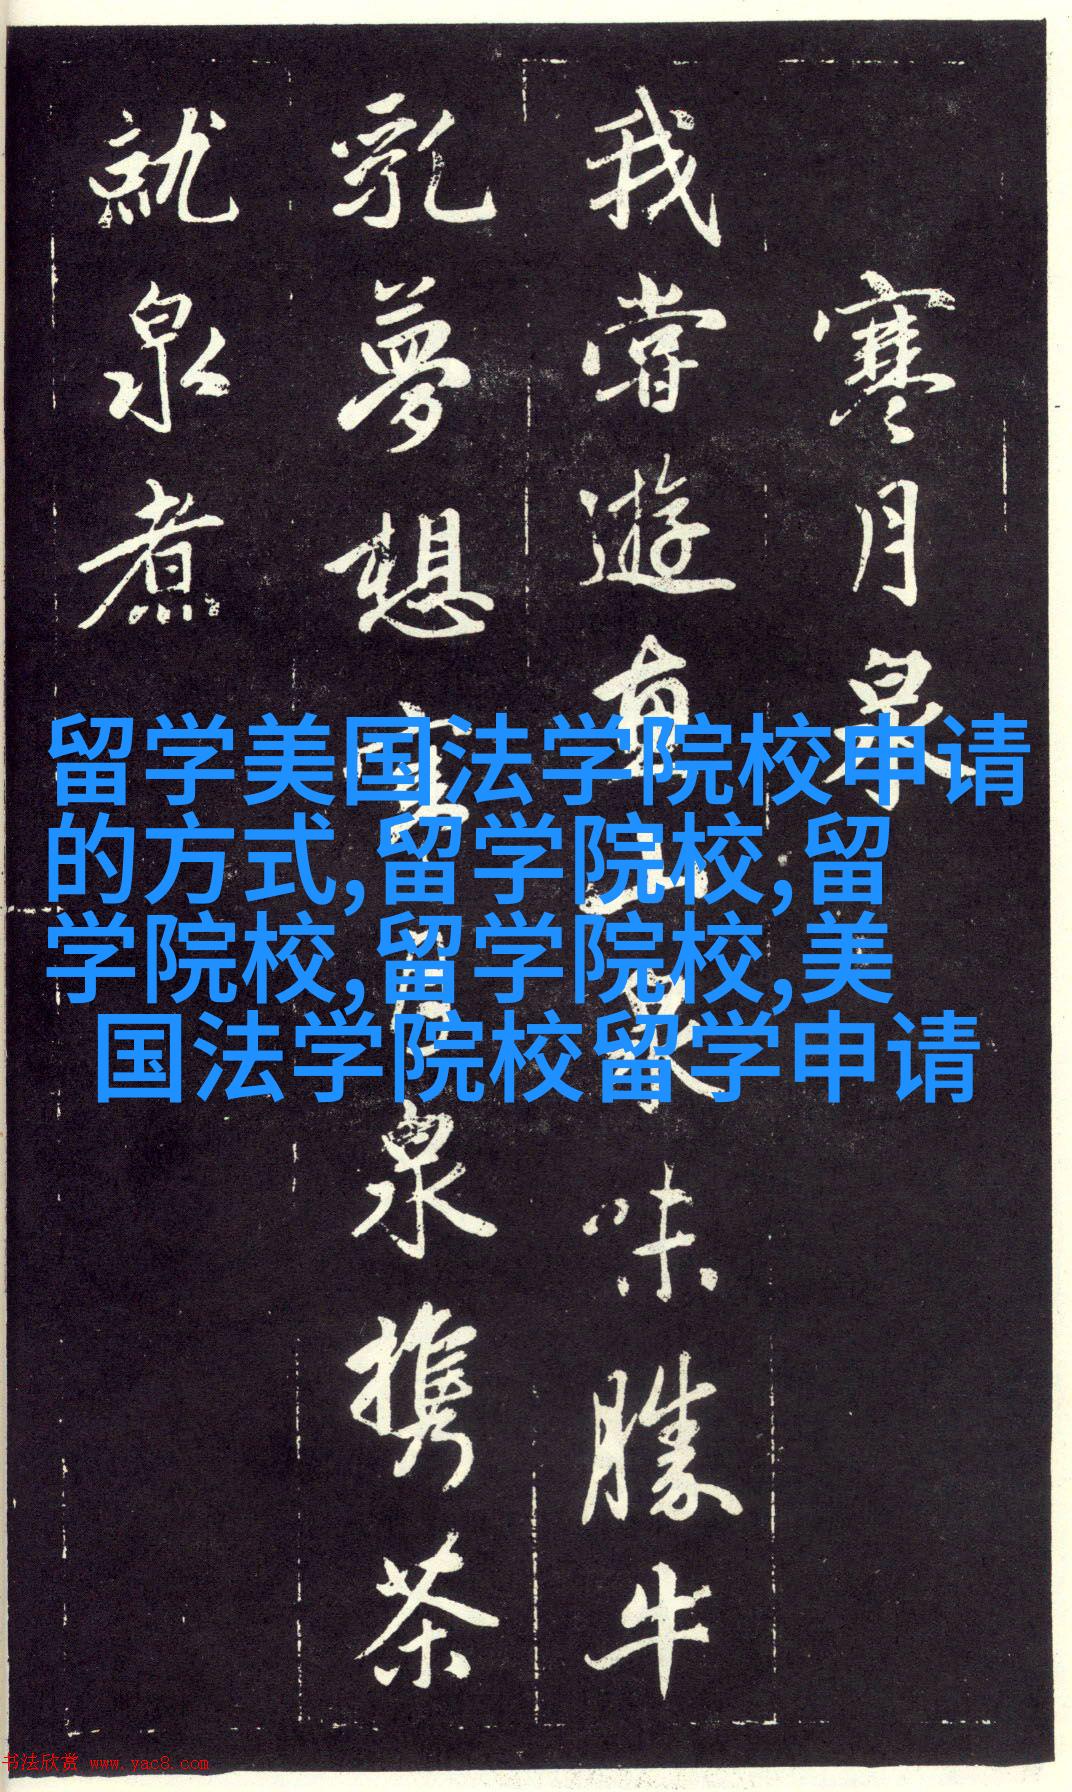 寒月泉
我嘗遊惠山泉味勝牛
乳夢想寒月泉攜茶
就泉煮
留学美国法学院校申请
的方式,留学院校,留
学院校,留学院校,美
国法学院校留学申请
书法欣赏 www.yac8.com